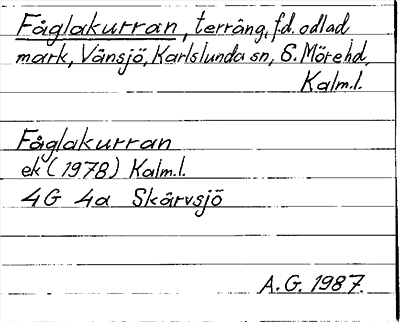 Fåglakurran, terräng, f.d. odlad
mark, Vänsjö, Karlslunda sn, S. Möre hd,
Kalm.l.
Fåglakurran
ek (1978) Kalm.l.
4G 4a Skärvsjö
A.G. 1987.